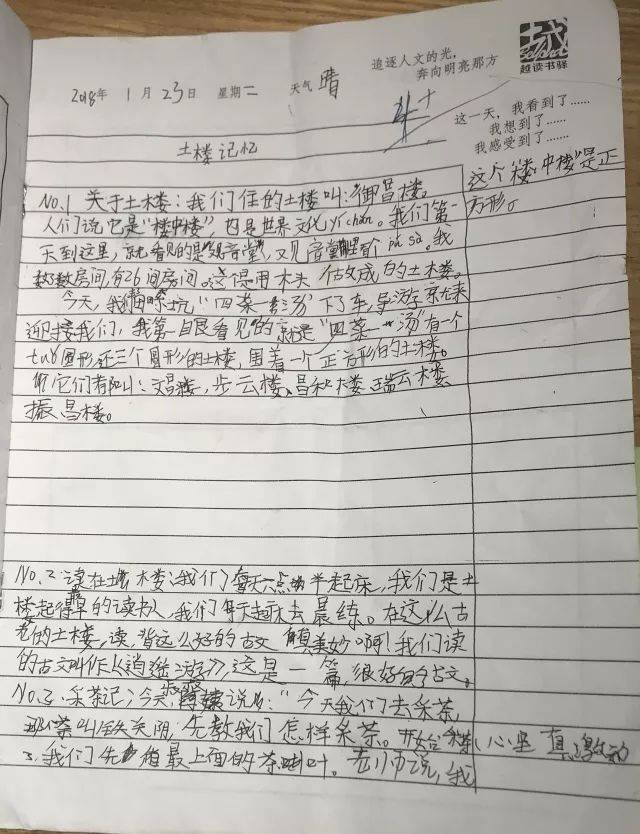 追逐人文的光，
奔向明亮那方
越读书驿
2018年 1月23日 星期二 天气 晴
这一天，我看到了……
我想到了……
我感受到了……
土楼记忆
No.1 关于土楼：我们住的土楼叫：御昌楼。
人们说它是“楼中楼”，也是世界文化yí chǎn。我们第一
天到这里，就看见的是“观音堂”，
数数房间，有26间房间。这是用木头做成的土楼。
今天，我们坑“四菜一汤”下了车，导游就来
迎接我们，我第一眼看见的就是“四菜一汤”有一个
圆形还三个圆形的土楼，围着一个正方形的土楼。
它们有叫：文昌楼，步云楼、昌和楼、瑞云楼、
振昌楼。
这个“楼中楼”是正
方形。
No.2 读在土楼：我们每天六点半起床，我们是土
楼起得早的读书人，我们每天起来去晨练。在这么古
老的土楼，读，背这么好的古文，真美妙啊！我们读
的古文叫作《逍遥游》，这是一篇，很好的古文。
No.3、采茶记：今天，说：“今天我们去采茶，
那茶叫铁关阴，先教我们怎样采茶。开始采茶，心里真激动
。我们先最上面的茶叶。老师说，我